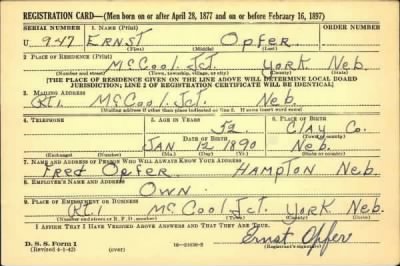 REGISTRATION CARD—(Men born on or after April 28, 1877 and on or before February 16, 1897)
SERIAL NUMBER 1. NAME (Print) ORDER NUMBER
U 947 ERNST OPFER
(First) (Middle) (Last)
2. PLACE OF RESIDENCE (Print)
McCool Jct. YORK Neb.
(Number and street) (Town, township, village, or city) (County) (State)
[THE PLACE OF RESIDENCE GIVEN ON THE LINE ABOVE WILL DETERMINE LOCAL BOARD
JURISDICTION; LINE 2 OF REGISTRATION CERTIFICATE WILL BE IDENTICAL]
3. MAILING ADDRESS
Rt. 1 McCool Jct. Neb.
[Mailing address if other than place indicated on line 2. If same insert word same]
4. TELEPHONE 5. AGE IN YEARS 6. PLACE OF BIRTH
52 Clay Co.
DATE OF BIRTH (Town or county)
JAN 12 1890 Neb.
(Exchange) (Number) (Mo.) (Day) (Yr.) (State or country)
7. NAME AND ADDRESS OF PERSON WHO WILL ALWAYS KNOW YOUR ADDRESS
FRED OPFER HAMPTON Neb.
8. EMPLOYER'S NAME AND ADDRESS
OWN
9. PLACE OF EMPLOYMENT OR BUSINESS
Rt. 1 McCool Jct. YORK Neb.
(Number and street or R. F. D. number) (Town) (County) (State)
I AFFIRM THAT I HAVE VERIFIED ABOVE ANSWERS AND THAT THEY ARE TRUE.
D. S. S. Form 1 Ernst Opfer
(Revised 4-1-42) (over) (Registrant's signature)